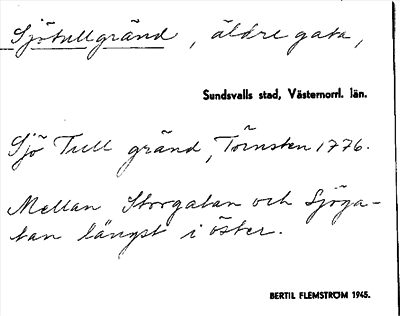 Sjötullgränd, äldre gata,
Sundsvalls stad, Västernorrl. län.
Sjö Tull gränd, Törnsten 1776.
Mellan Storgatan och Sjöga-
tan längst i öster.
BERTIL FLEMSTRÖM 1945.